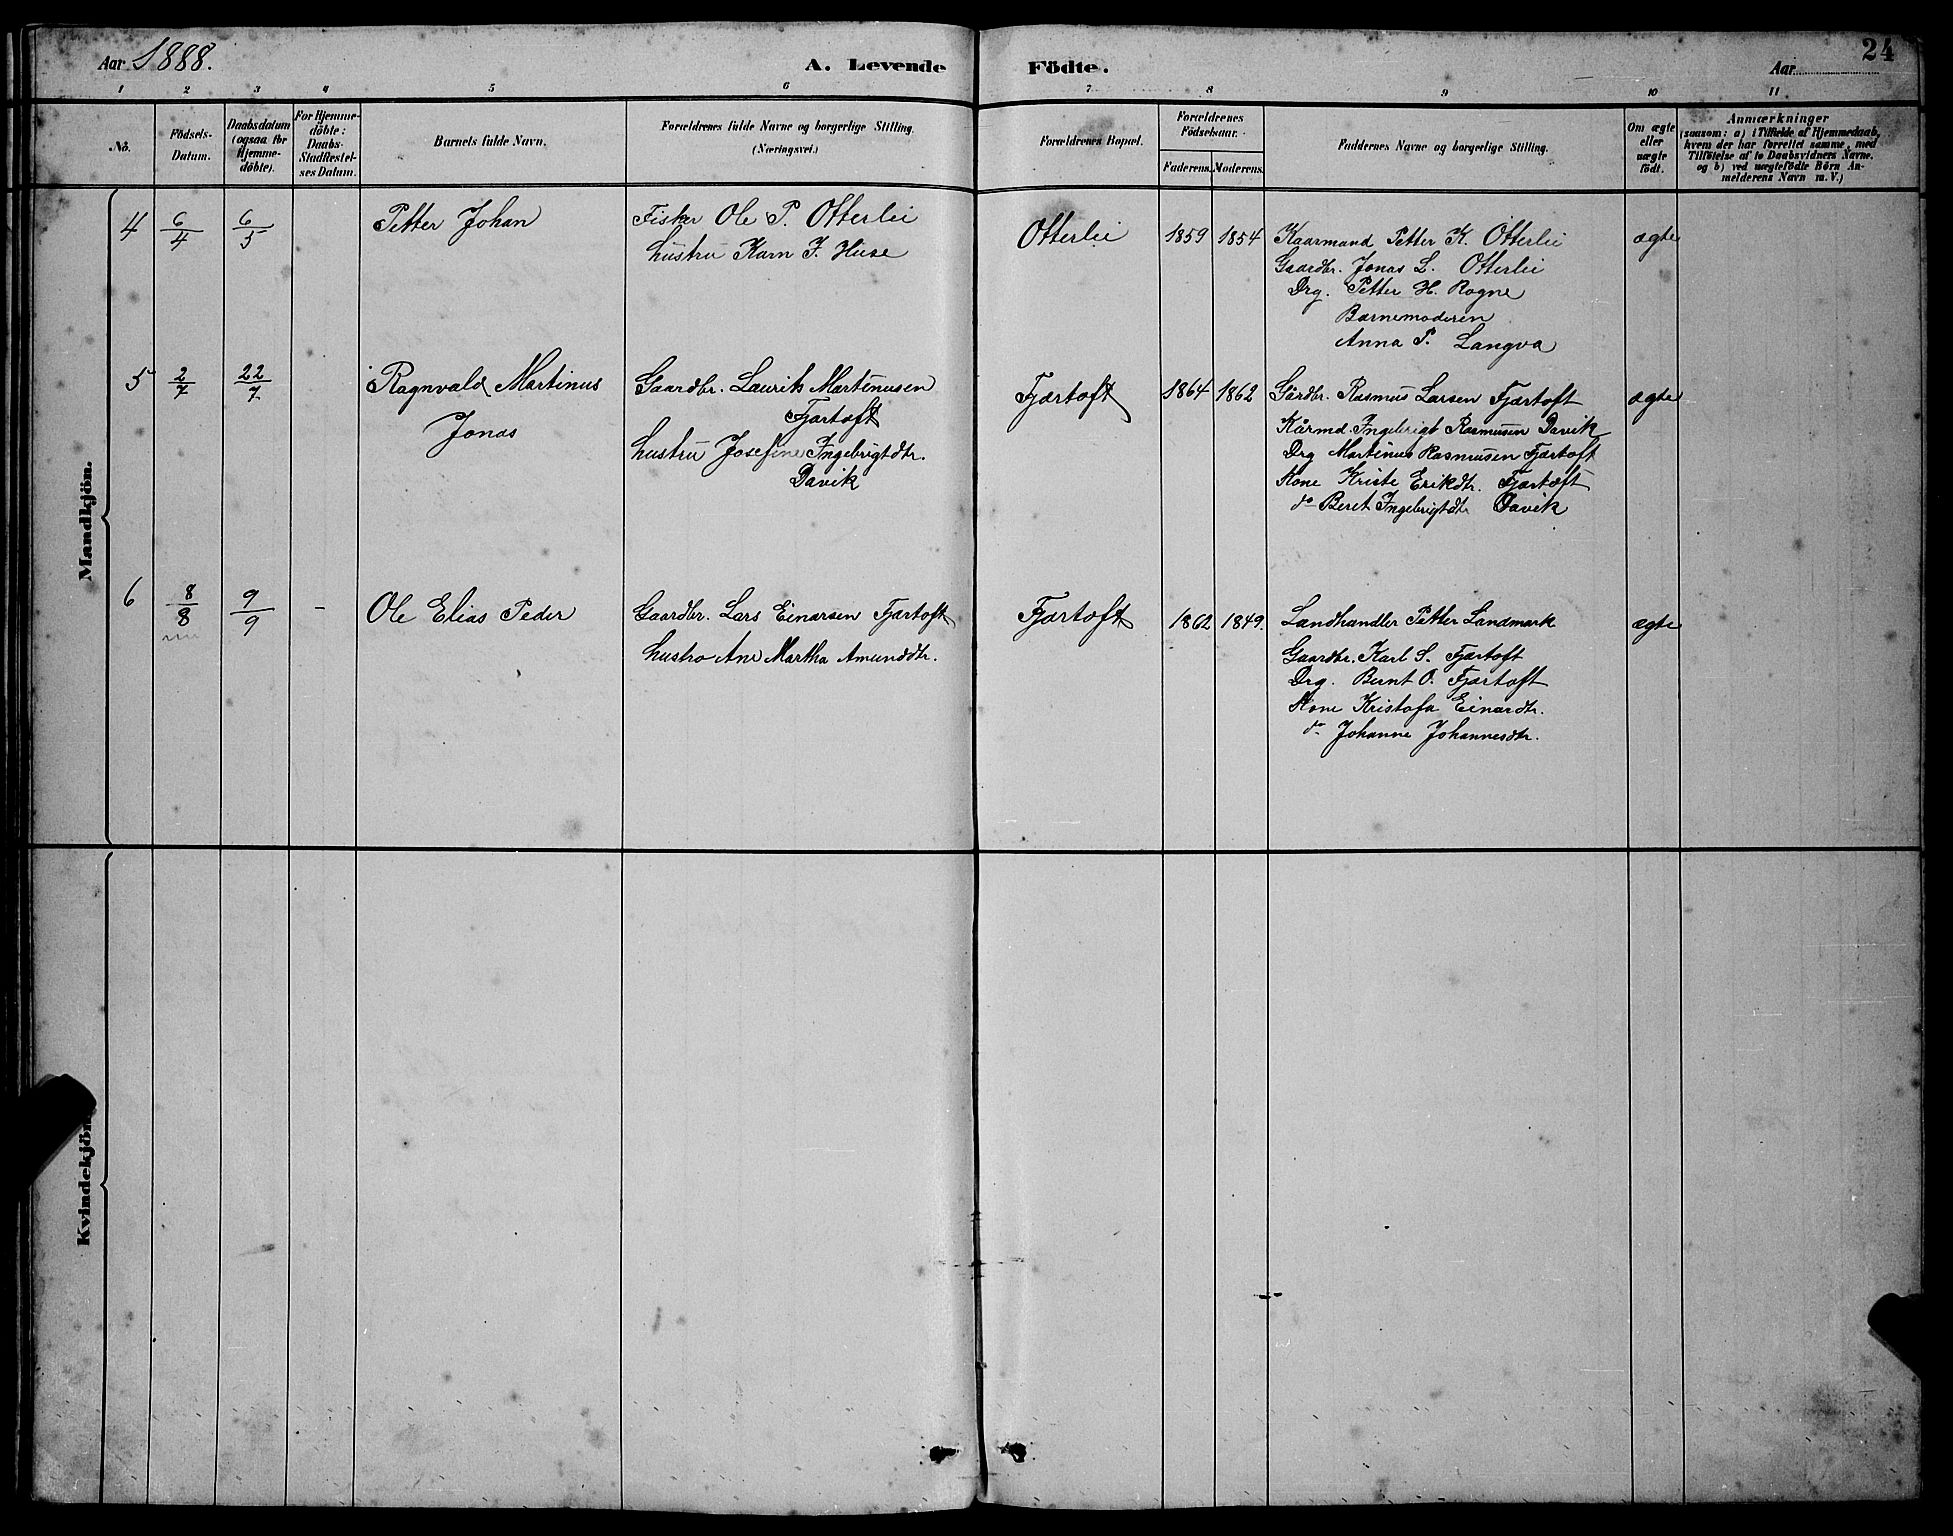 Aar 1888.
A. Levende Födte.
Aar
24
1 2 3 4 5 6 7 8 9 10 11
No.
Födsels-
Datum.
Daabsdatum
(ogsaa for
Hjemme-
döbte).
For Hjemme-
döbte:
Daabs-
Stadfæstel-
ses Datum.
Barnets fulde Navn.
Forældrenes fulde Navne og borgerlige Stilling.
(Næringsvei.)
Forældrenes Bopæl.
Forældrenes
Födselsaar.
Faderens. Moderens.
Faddernes Navne og borgerlige Stilling.
Om ægte
eller
uægte
födt.
Anmærkninger
(saasom: a) i Tilfælde af Hjemmedaab,
hvem der har forrettet samme, med
Tilföielse af to Daabsvidners Navne,
og b) ved uægtefödte Börn An-
melderens Navn m. V.)
Mandkjön.
4 6/4 6/5 Petter Johan
Fisker Ole P. Otterlei
hustru Karn J. Huse
Otterlei 1859 1854
Kaarmand Petter K. Otterlei
Gaardbr. Jonas L. Otterlei
Drg. Petter H. Rogne
Barnemoderen
Anna P. Langva
ægte
5 2/7 22/7 Ragnvald Martinus
Jonas
Gaardbr. Laurits Martinusen
Fjærtoft
hustru Josefine Ingebrigtdtr.
Davik
Fjærtoft 1864 1862
Gårdbr. Rasmus Larsen Fjærtoft
Kårmd. Ingebrigt Rasmusen Davik
Drg Martinus Rasmusen Fjærtoft
Kone Kriste Erikdtr. Fjærtoft
do Beret Ingebrigtdtr Davik
ægte
6 8/8 9/9 - Ole Elias Peder
Gaardbr. Lars Einarsen Fjærtoft
hustro Ane Martha Amunddtr.
Fjærtoft 1862 1849.
Landhandler Petter Landmark
Gaardbr. Karl S. Fjærtoft
Drg. Bernt O. Fjærtoft
Kone Kristofa Einardtr.
do Johanne Johannesdtr.
ægte
Kvindekjön.